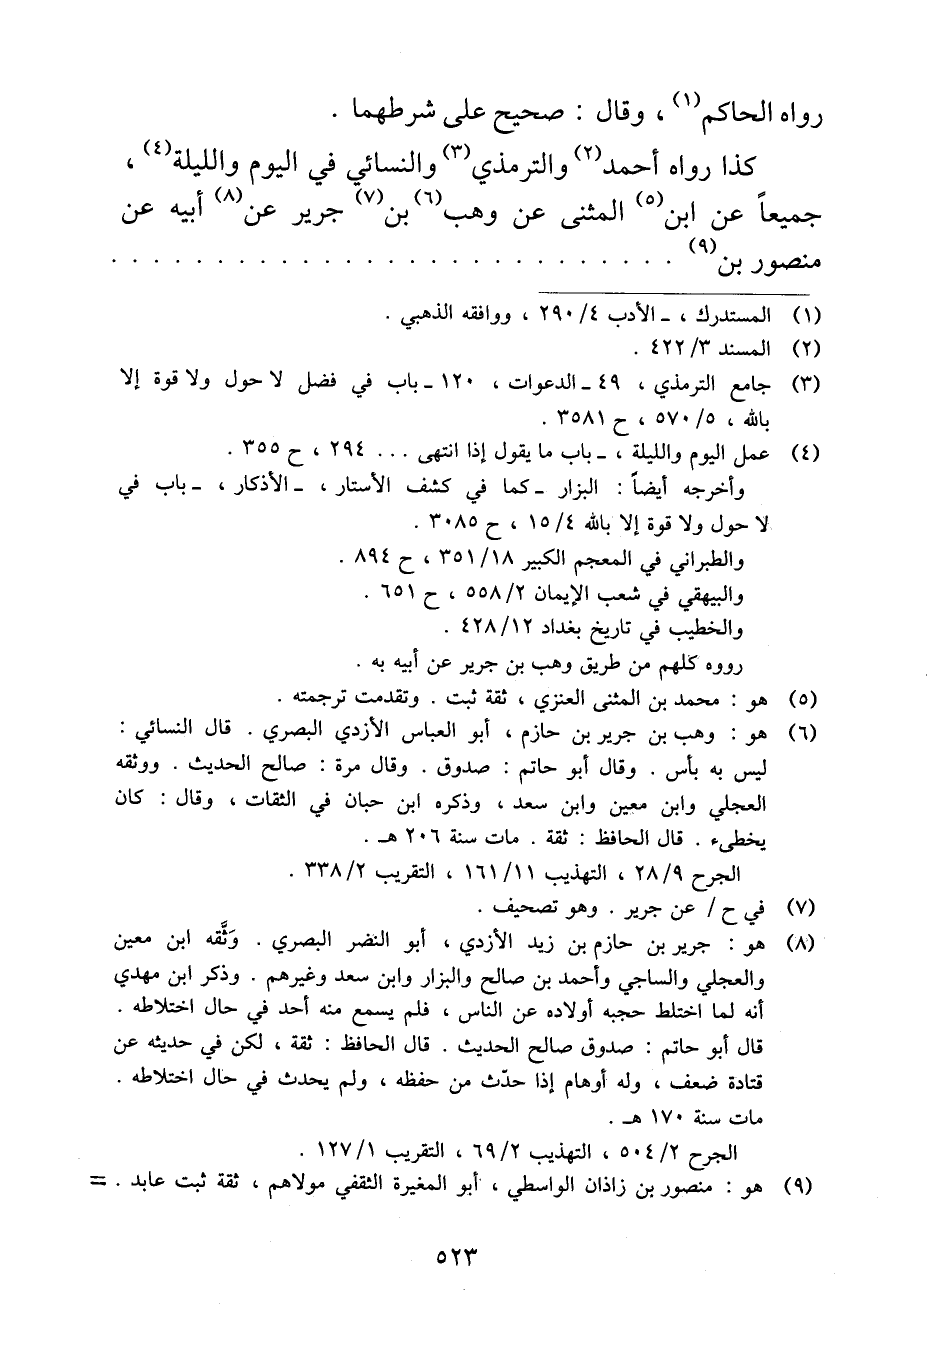 رواه الحاكم(١) ، وقال : صحيح على شرطهما .
كذا رواه أحمد(٢) والترمذي(٣) والنسائي في اليوم والليلة(٤) ،
جميعاً عن ابن(٥) المثنى عن وهب(٦) بن(٧) جرير عن(٨) أبيه عن
منصور بن(٩) . . . . . . . . . . . . . . . . . . . . . . . . . . .
(١) المستدرك ، ـ الأدب ٤/ ٢٩٠ ، ووافقه الذهبي .
(٢) المسند ٣/ ٤٢٢ .
(٣) جامع الترمذي ، ٤٩ ـ الدعوات ، ١٢٠ ـ باب في فضل لا حول ولا قوة إلا
بالله ، ٥/ ٥٧٠ ، ح ٣٥٨١ .
(٤) عمل اليوم والليلة ، ـ باب ما يقول إذا انتهى ... ٢٩٤ ، ح ٣٥٥ .
وأخرجه أيضاً : البزار ـ كما في كشف الأستار ، ـ الأذكار ، ـ باب في
لا حول ولا قوة إلا بالله ٤/ ١٥ ، ح ٣٠٨٥ .
والطبراني في المعجم الكبير ١٨/ ٣٥١ ، ح ٨٩٤ .
والبيهقي في شعب الإيمان ٢/ ٥٥٨ ، ح ٦٥١ .
والخطيب في تاريخ بغداد ١٢/ ٤٢٨ .
رووه كلهم من طريق وهب بن جرير عن أبيه به .
(٥) هو : محمد بن المثنى العنزي ، ثقة ثبت . وتقدمت ترجمته .
(٦) هو : وهب بن جرير بن حازم ، أبو العباس الأزدي البصري . قال النسائي :
ليس به بأس . وقال أبو حاتم : صدوق . وقال مرة : صالح الحديث . ووثقه
العجلي وابن معين وابن سعد ، وذكره ابن حبان في الثقات ، وقال : كان
يخطىء . قال الحافظ : ثقة . مات سنة ٢٠٦ هـ .
الجرح ٩/ ٢٨ ، التهذيب ١١/ ١٦١ ، التقريب ٢/ ٣٣٨ .
(٧) في ح / عن جرير . وهو تصحيف .
(٨) هو : جرير بن حازم بن زيد الأزدي ، أبو النضر البصري . وَثَّقه ابن معين
والعجلي والساجي وأحمد بن صالح والبزار وابن سعد وغيرهم . وذكر ابن مهدي
أنه لما اختلط حجبه أولاده عن الناس ، فلم يسمع منه أحد في حال اختلاطه .
قال أبو حاتم : صدوق صالح الحديث . قال الحافظ : ثقة ، لكن في حديثه عن
قتادة ضعف ، وله أوهام إذا حدّث من حفظه ، ولم يحدث في حال اختلاطه .
مات سنة ١٧٠ هـ .
الجرح ٢/ ٥٠٤ ، التهذيب ٢/ ٦٩ ، التقريب ١/ ١٢٧ .
(٩) هو : منصور بن زاذان الواسطي ، أبو المغيرة الثقفي مولاهم ، ثقة ثبت عابد . =
٥٢٣